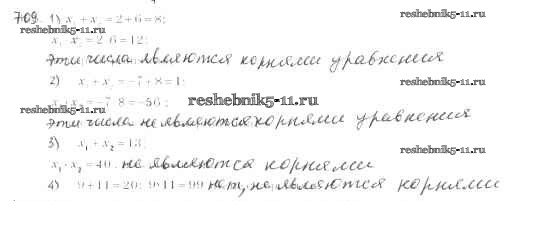 709. 1) x₁ + x₂ = 2 + 6 = 8; reshebnik5-11.ru
reshebnik5-11.ru
x₁ · x₂ = 2 · 6 = 12;
Эти числа являются корнями уравнения
2) x₁ + x₂ = -7 + 8 = 1; reshebnik5-11.ru
x₁ · x₂ = -7 · 8 = -56; reshebnik5-11.ru
reshebnik5-11.ru
Эти числа не являются корнями уравнения
3) x₁ + x₂ = 13; reshebnik5-11.ru
x₁ · x₂ = 40. не являются корнями
4) 9 + 11 = 20; 9·11 = 99 нет, не являются корнями